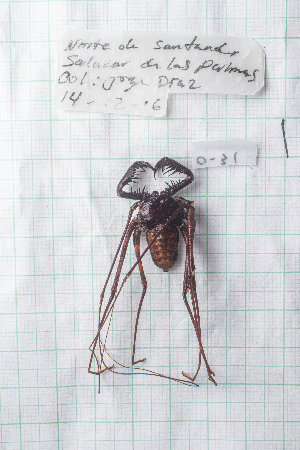 Norte de Santander
Salazar de las Palmas
Col: Jorge Díaz
14 - 12 - 6
0-31